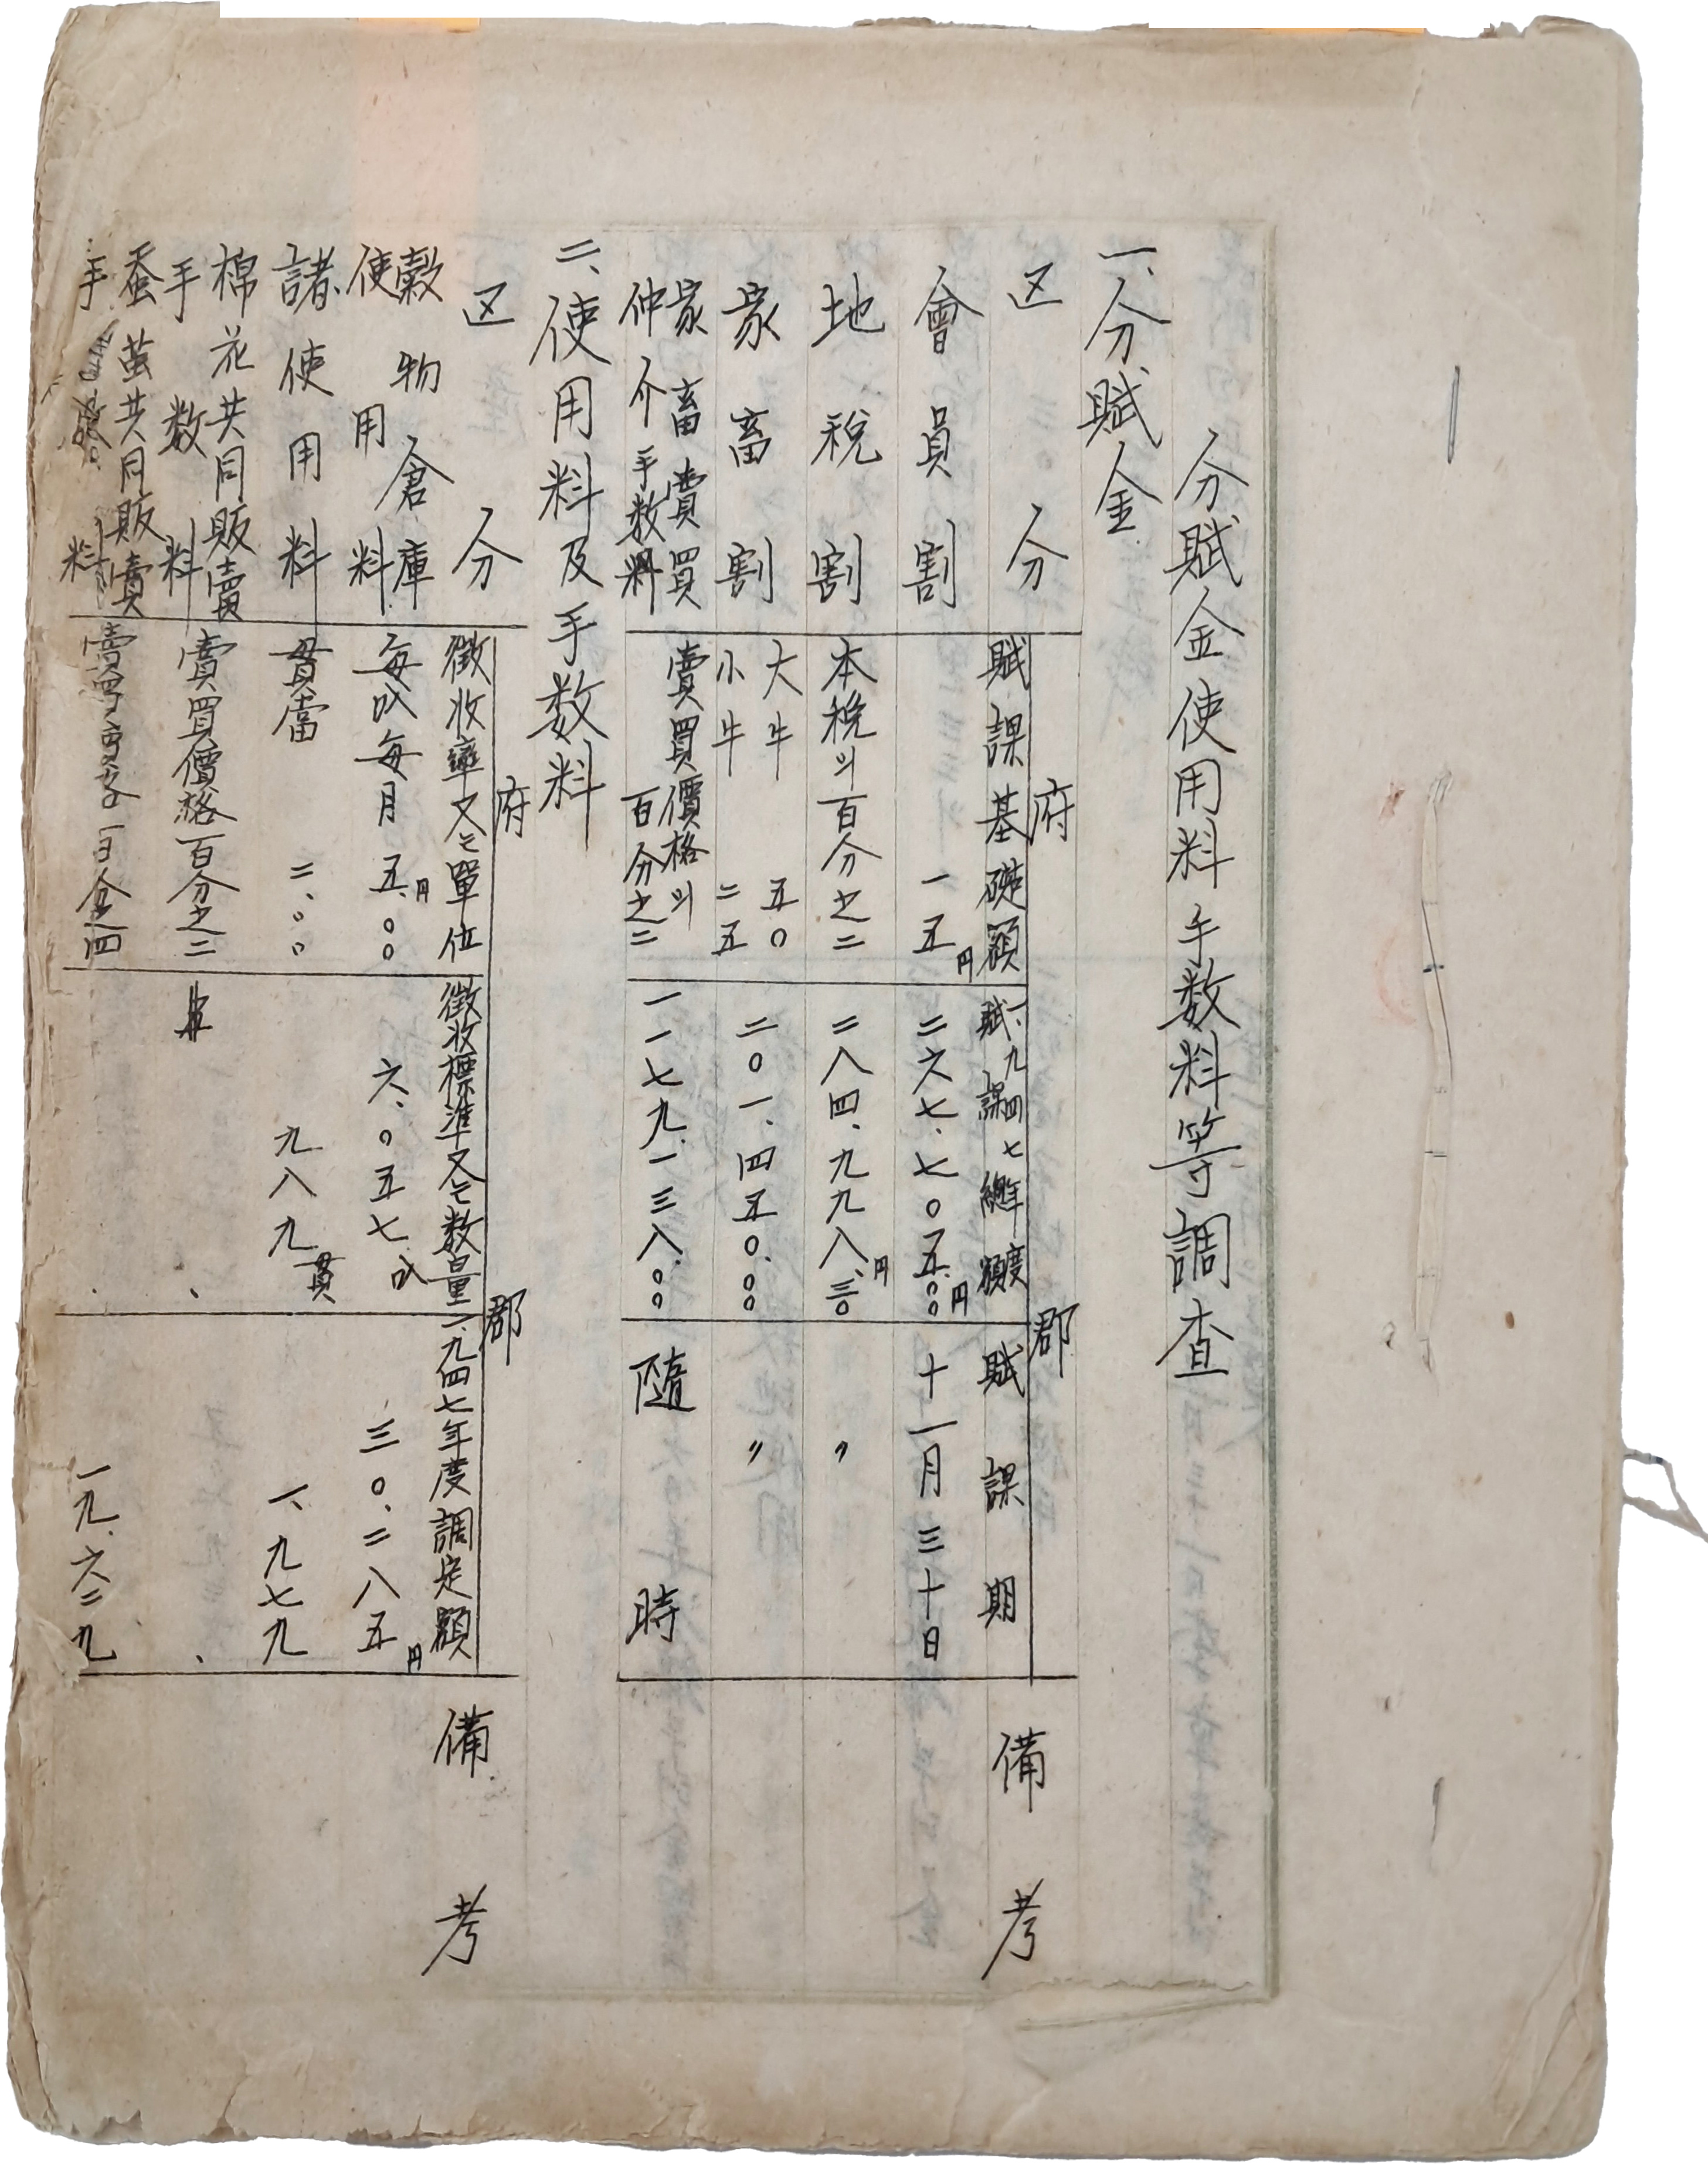 分賦金使用料手数料等調査
一、分賦金
区分 府郡 備考
賦課基礎額 一、九四七年度賦課總額 賦課期
會員割 一五円 二六七、七〇五.〇〇円 十一月三十日
地稅割 本稅의百分之二 二八四、九九八.三〇円 〃
家畜割 大牛 五〇 小牛 二五 二〇一、四五〇.〇〇 〃
家畜賣買仲介手数料 賣買價格의百分之二 一一七九、一三八.〇〇 隨時
二、使用料及手数料
区分 府郡 備考
徵收率又는單位 徵收標準又는数量 一、九四七年度調定額
穀物倉庫使用料 每叺每月 五.〇〇円 六、〇五七叺 三〇、二八五円
諸使用料 貫當 二.〇〇 九八九貫 一、九七九
棉花共同販賣手数料 賣買價格百分之二
蚕茧共同販賣手数料 百分之四 一九、六二九